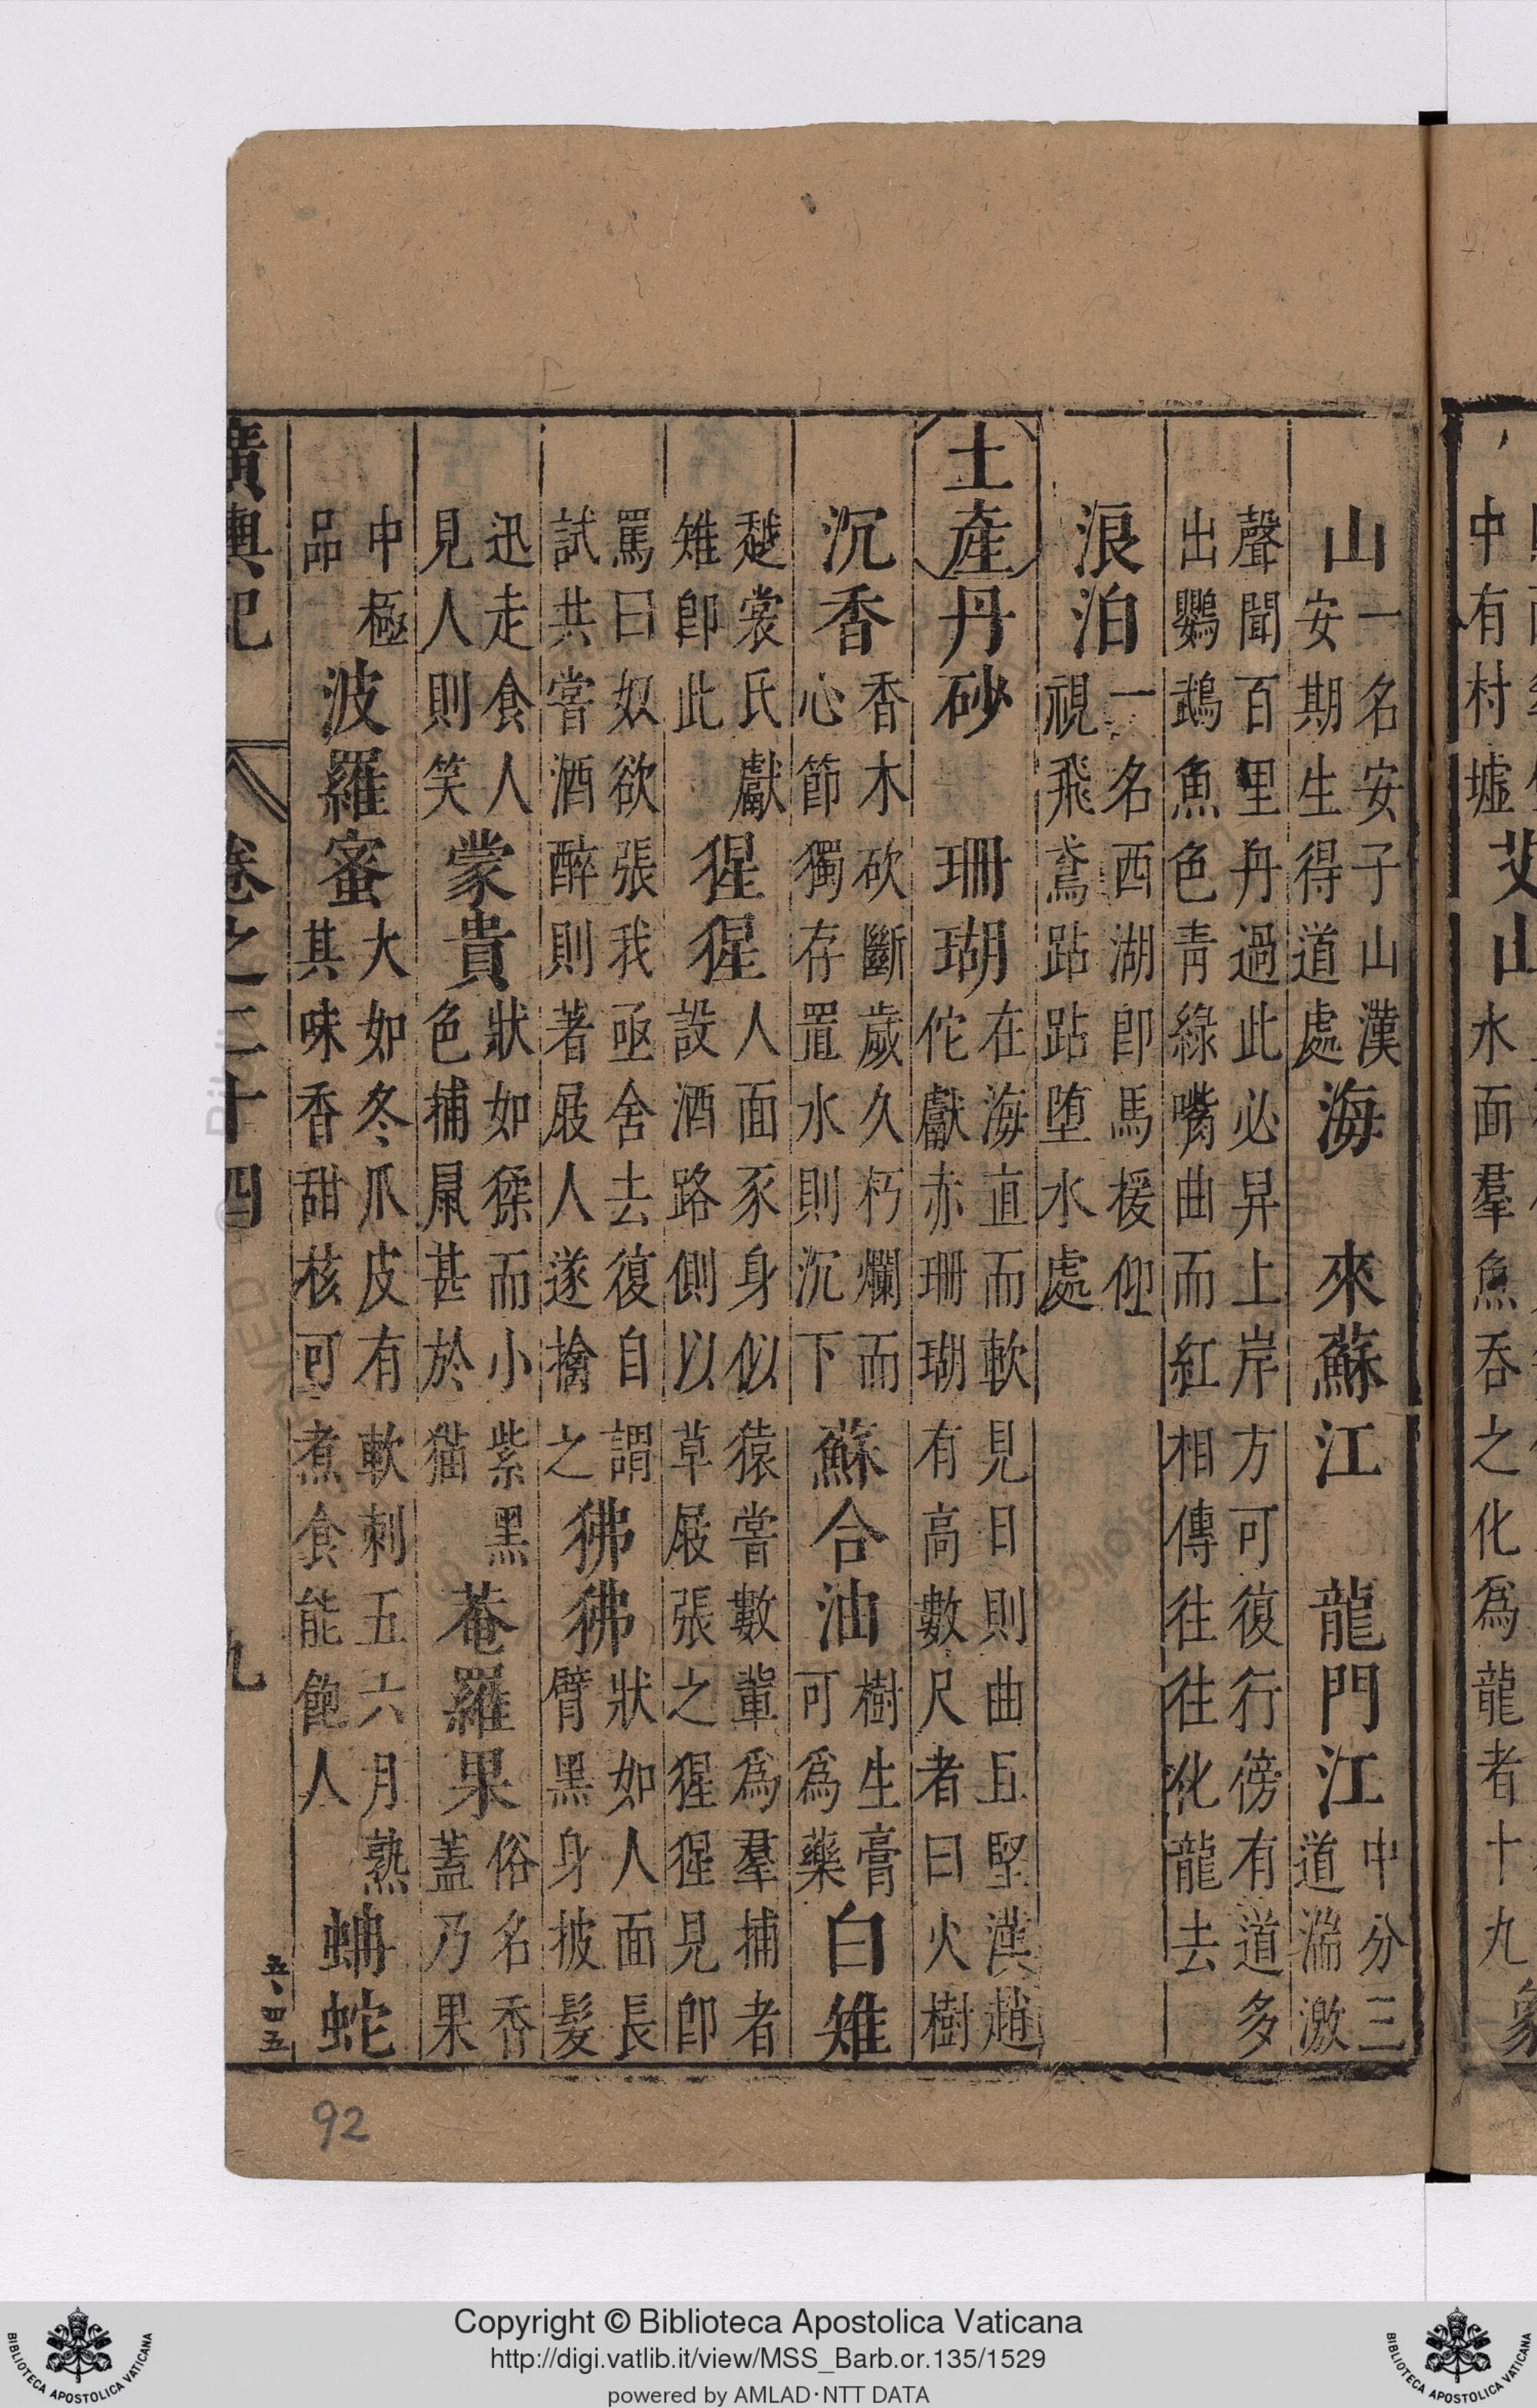 中有村墟 山 水面羣魚吞之化爲龍者十九
山 一名安子山漢安期生得道處 海 來蘇江 龍門江 中分三道湍激
聲聞百里舟過此必昇上岸方可復行傍有道多
出鸚鵡魚色靑綠嘴曲而紅相傳往往化龍去
浪泊 一名西湖卽馬援仰視飛鳶跕跕墮水處
土產 丹砂 珊瑚 在海直而軟見日則曲且堅漢趙佗獻赤珊瑚有高數尺者曰火樹
沉香 香木砍斷歲久朽爛而心節獨存置水則沉下 蘇合油 樹生膏可爲藥 白雉
越裳氏獻雉卽此 猩猩 人面豕身似猿嘗數輩爲羣捕者設酒路側以草屐張之猩猩見卽
罵曰奴欲張我亟舍去復自謂試共嘗酒醉則著屐人遂擒之 狒狒 狀如人面長臂黑身披髮
迅走食人見人則笑 蒙貴 狀如猱而小紫黑色捕鼠甚於猫 菴羅果 俗名香蓋乃果
中極品 波羅蜜 大如冬瓜皮有軟刺五六月熟其味香甜核可煮食能飽人 蚺蛇
廣輿記 卷之二十四 九 五、四五
92
Copyright © Biblioteca Apostolica Vaticana
http://digi.vatlib.it/view/MSS_Barb.or.135/1529
powered by AMLAD·NTT DATA
BIBLIOTECA APOSTOLICA VATICANA
BIBLIOTECA APOSTOLICA VATICANA